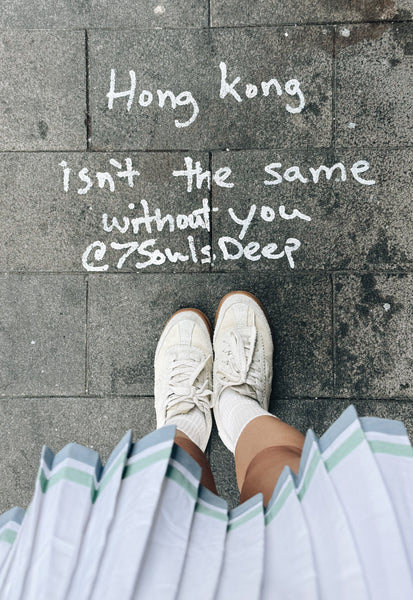 Hong kong
isn't the same
without you
@7Souls.Deep